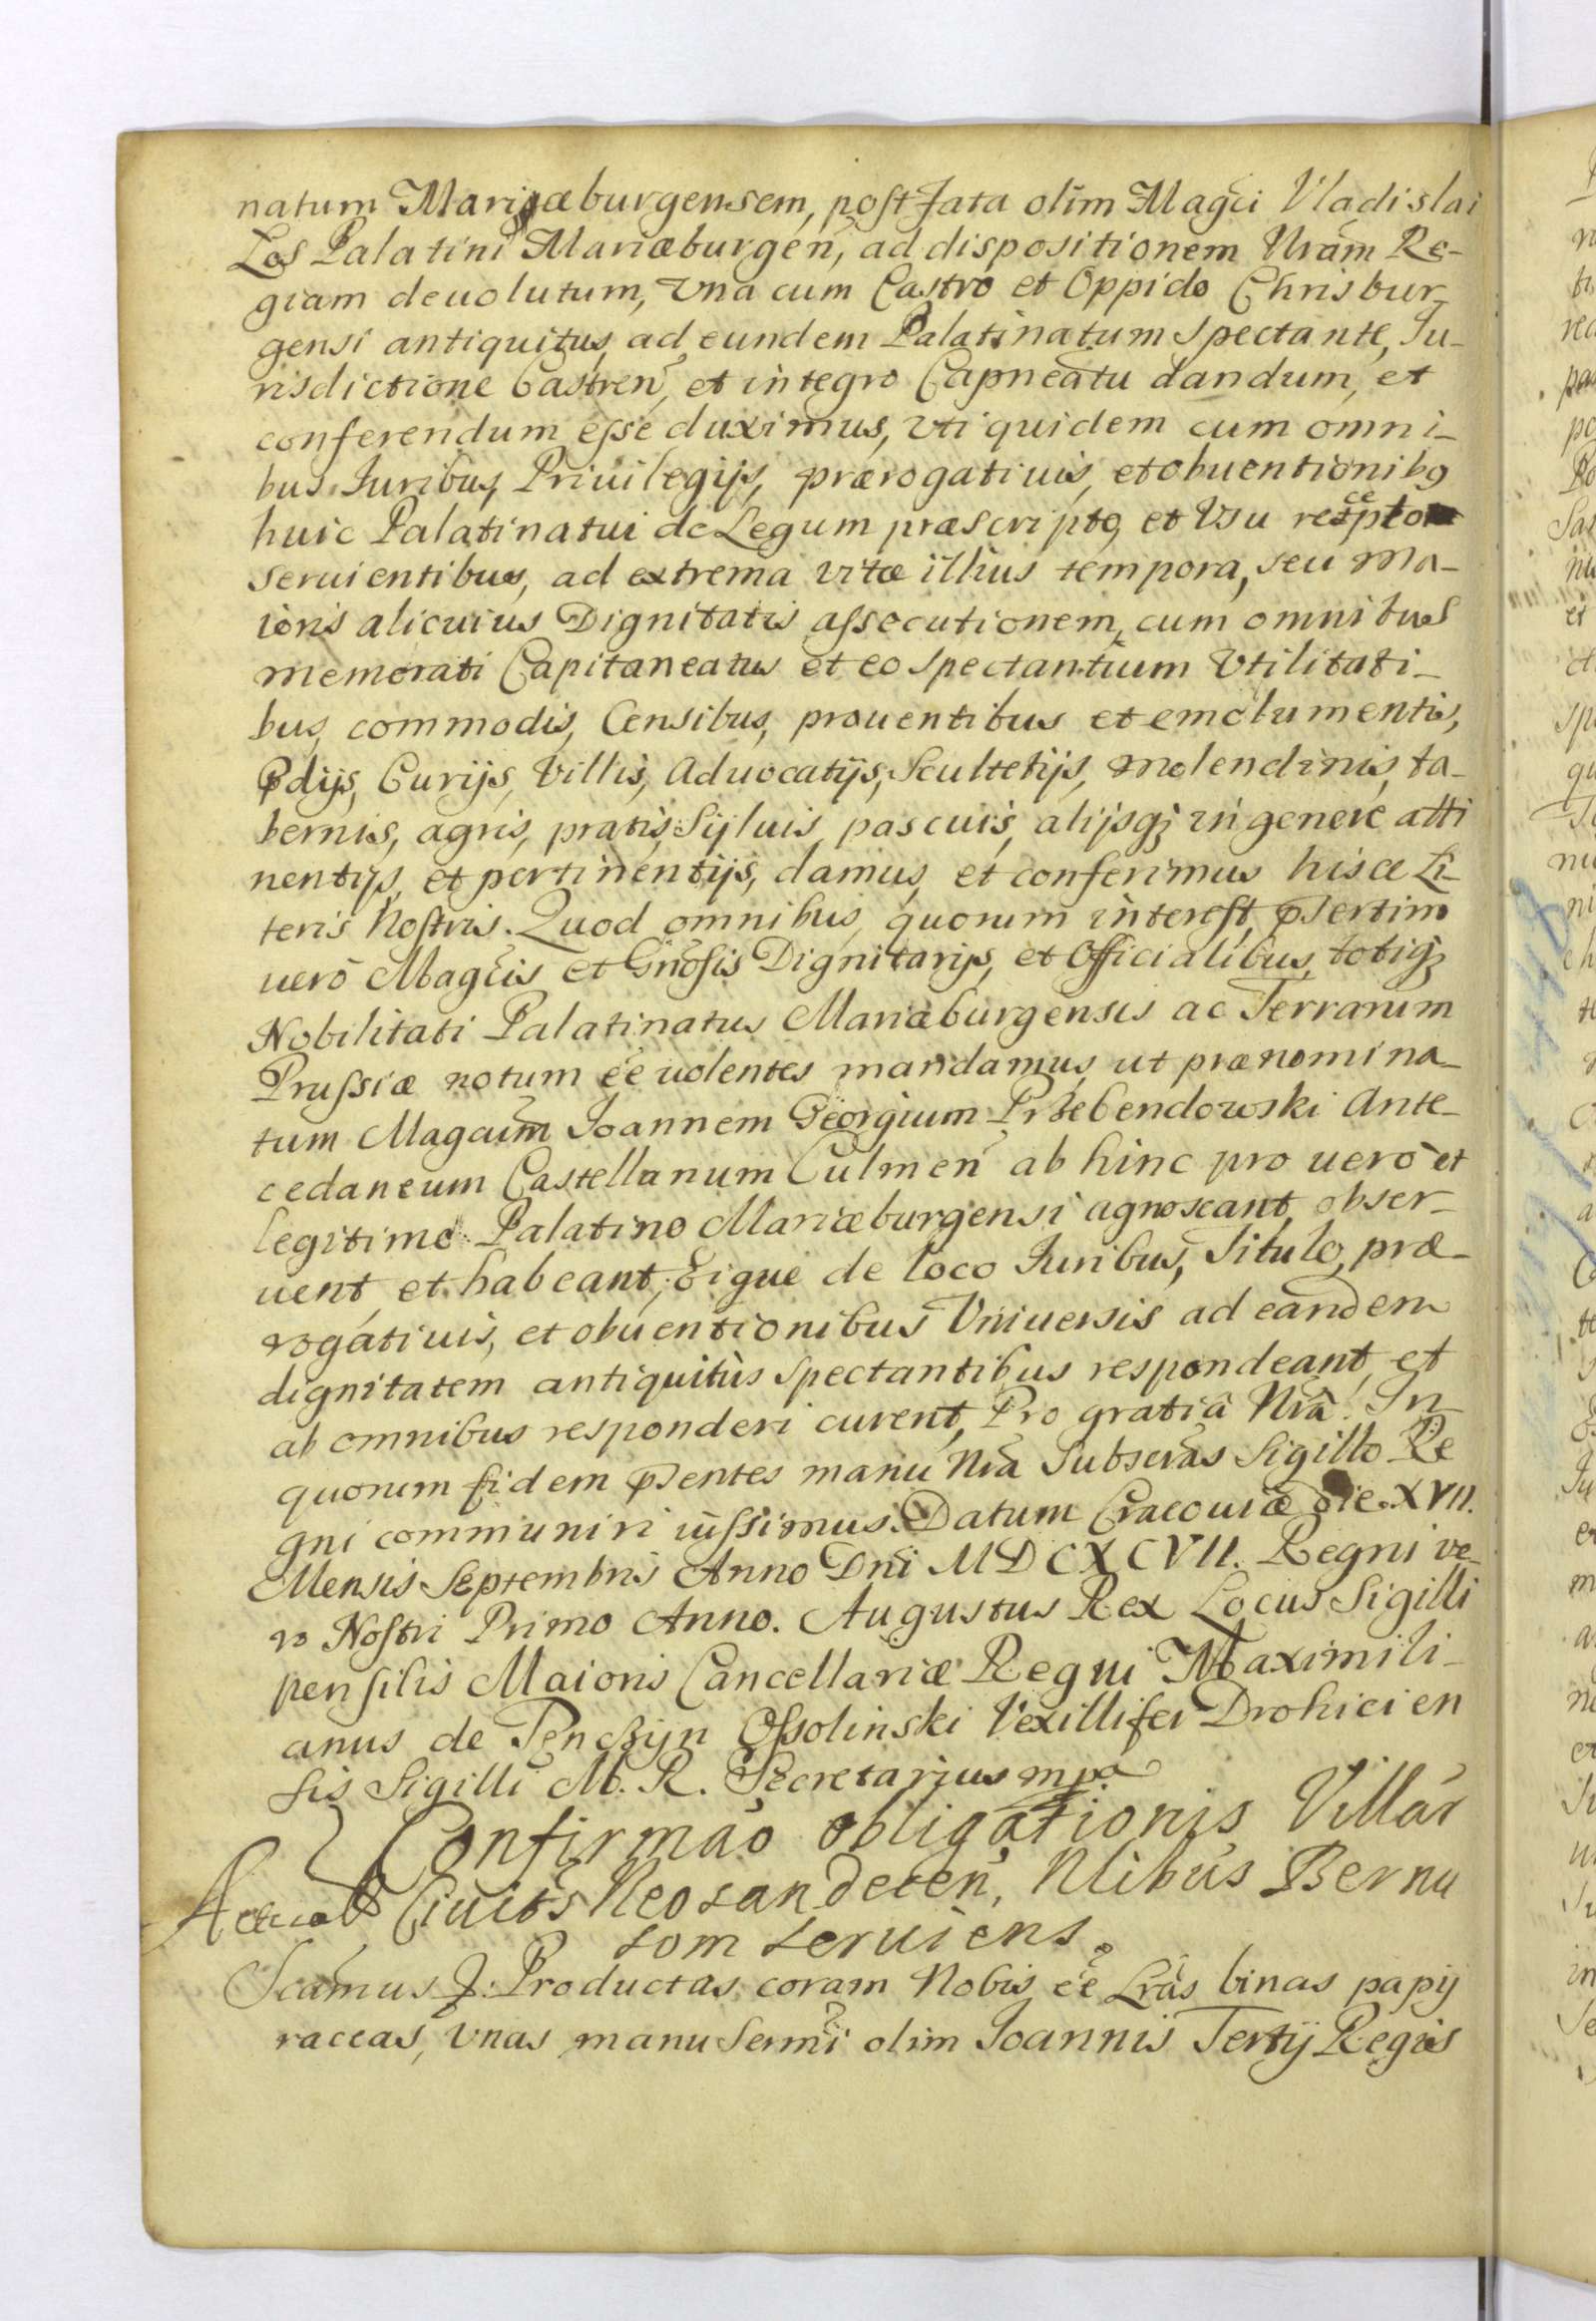 natum Mariæburgensem, post fata olim Magci Vladislai
Los Palatini Mariæburgen, ad dispositionem Nram Re-
giam deuolutum, vna cum Castro et Oppido Chrisbur-
gensi antiquitus ad eundem Palatinatum spectante, Ju-
risdictione Castren, et integro Capneatu dandum, et
conferendum esse duximus, vti quidem cum omni-
bus Juribus, Priuilegijs, prærogatiuis, et obuentionibꝯ
huic Palatinatui de Legum præscripto, et Vsu recepto
seruientibus, ad extrema vitæ illius tempora, seu ma-
ioris alicuius Dignitatis assecutionem, cum omnibus
memorati Capitaneatus et eo spectantium Vtilitati-
bus, commodis, Censibus, prouentibus et emolumentis,
Pdijs, Curijs, Villis, Aduocatijs, Scultetijs, molendinis, ta-
bernis, agris, pratis, Syluis, pascuis, alijsqꝫ in genere atti
nentijs, et pertinentijs, damus, et conferimus hisce Li-
teris Nostris. Quod omnibus, quorum interest, pꝛsertim
uero Magcis et Gnosis Dignitarijs, et Officialibus, totiqꝫ
Nobilitati Palatinatus Mariæburgensis ac Terrarum
Prussiæ notum ee uolentes mandamus, ut prænomina-
tum Magcum Joannem Georgium Przebendowski Ante-
cedaneum Castellanum Culmen ab hinc pro uero et
legitimo Palatino Mariæburgensi agnoscant, obser-
uent, et habeant, Eique de loco Juribus, Titulo, præ-
rogatiuis, et obuentionibus Vniuersis ad eandem
dignitatem antiquitùs spectantibus respondeant, et
ab omnibus responderi curent, Pro gratiâ Nrâ. In
quorum fidem pꝛsentes manu Nra Subscras Sigillo Re
gni communiri iussimus. Datum Cracouiæ die XVII.
Mensis Septembris Anno Dni MDCXCVII. Regni ve-
ro Nostri Primo Anno. Augustus Rex Locus Sigilli
pensilis Maioris Cancellariæ Regni Maximili-
anus de Tenczyn Ossolinski Vexillifer Drohicien
sis Sigilli M. R. Secretarius mpa
Confirmao obligationis Villar
Ciuits Neosandecen, Nlibus Bernu
som seruiens.
Scamus &: Productas coram Nobis ee Lras binas papy
raceas, vnas manu Sermi olim Joannis Tertij Regis